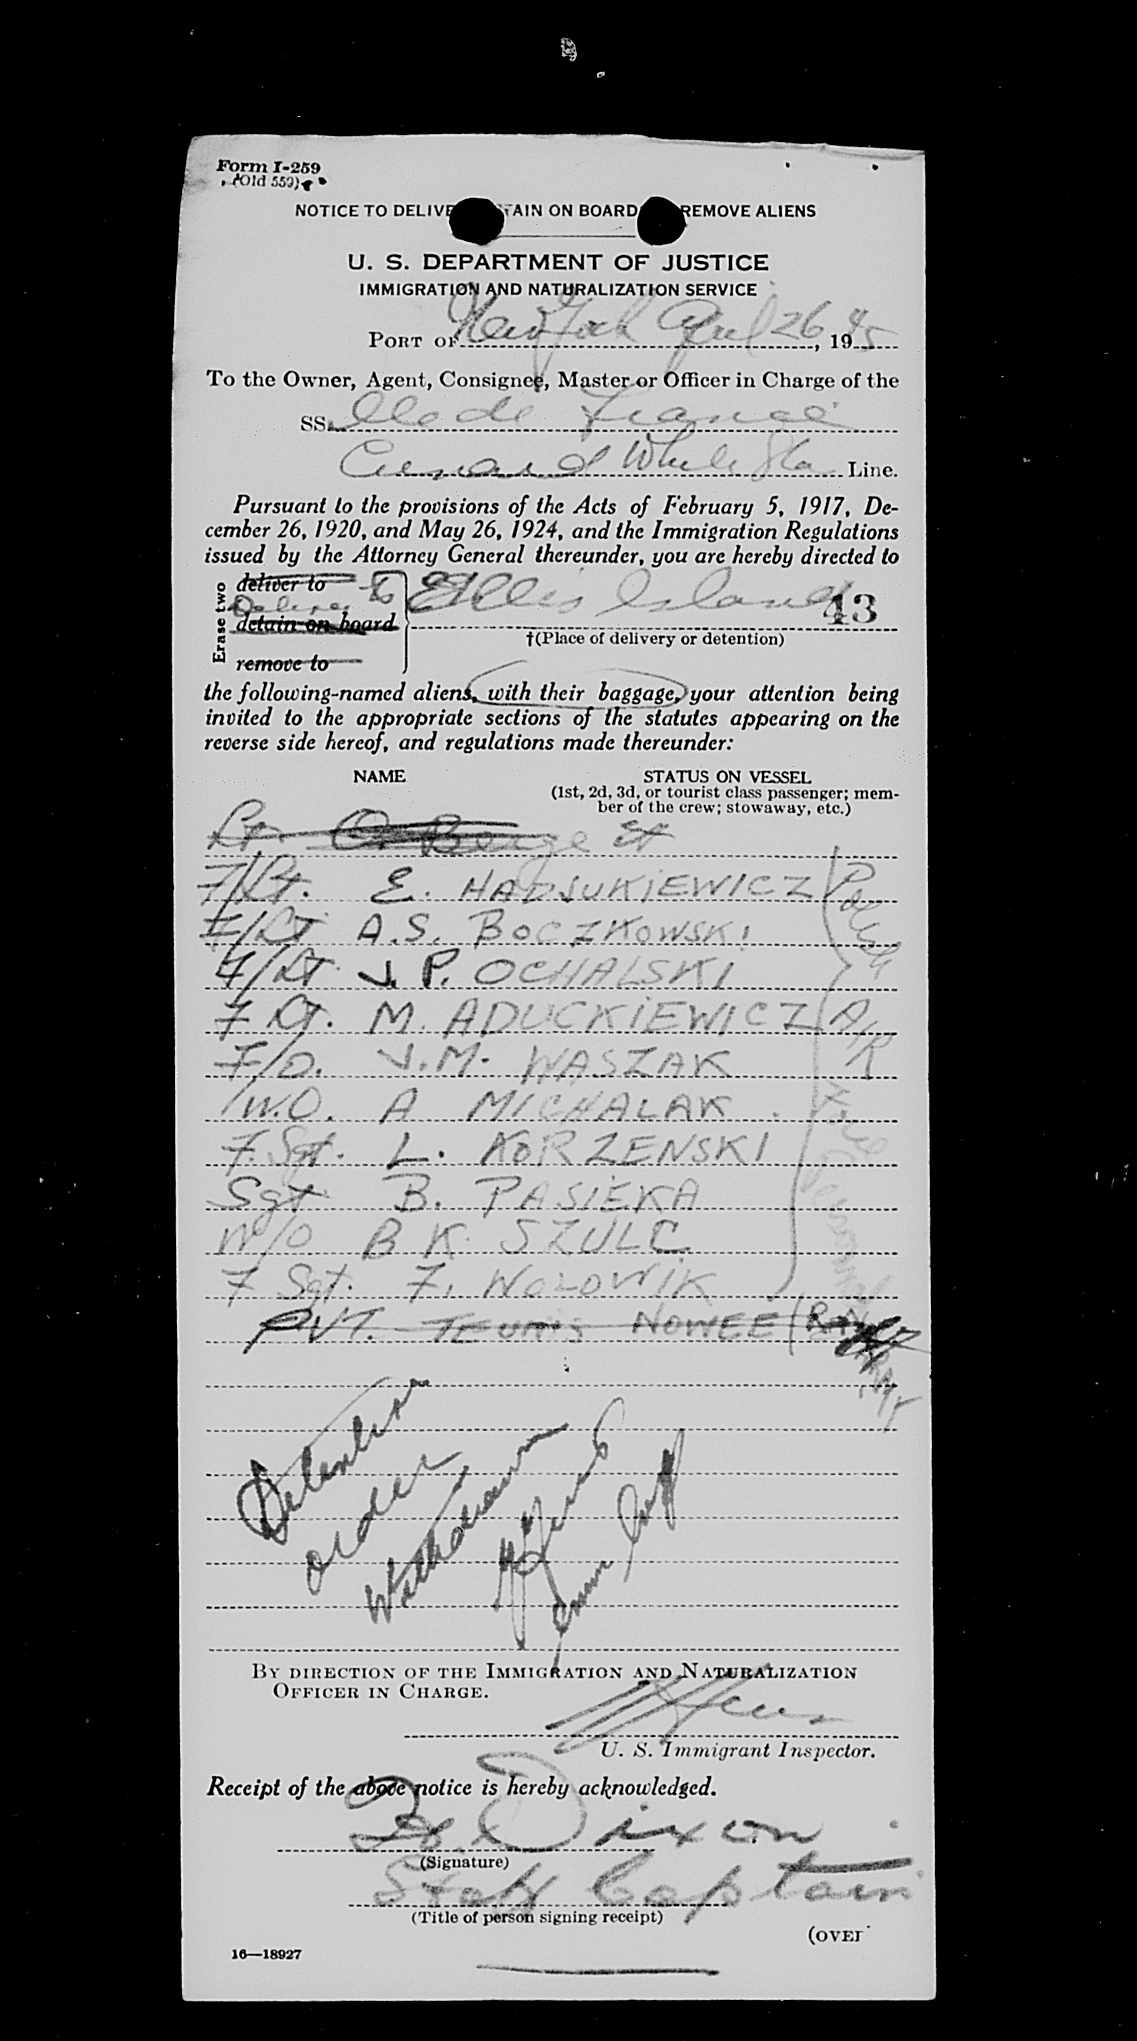 Form I-259
(Old 559)
NOTICE TO DELIVE   TAIN ON BOARD   REMOVE ALIENS
U. S. DEPARTMENT OF JUSTICE
IMMIGRATION AND NATURALIZATION SERVICE
PORT OF New York April 26, 1945
To the Owner, Agent, Consignee, Master or Officer in Charge of the
SS. Ile de France
Cunard White Star Line.
Pursuant to the provisions of the Acts of February 5, 1917, De-
cember 26, 1920, and May 26, 1924, and the Immigration Regulations
issued by the Attorney General thereunder, you are hereby directed to
Erase two
deliver to
Deliver to Ellis Island 43
detain on board
†(Place of delivery or detention)
remove to
the following-named aliens, with their baggage, your attention being
invited to the appropriate sections of the statutes appearing on the
reverse side hereof, and regulations made thereunder:
NAME STATUS ON VESSEL
(1st, 2d, 3d, or tourist class passenger; mem-
ber of the crew; stowaway, etc.)
Lt. O. Berge
F/Lt. E. HADJUKIEWICZ Polish
F/Lt A.S. BOCZKOWSKI
F/Lt J. P. OCHALSKI
F Lt. M. ADUCKIEWICZ AIR
F/O. J.M. WASZAK
W.O. A MICHALAK
F. Sgt. L. KORZENSKI
Sgt B. PASIEKA
W/O B K. SZULC
F Sgt. F. WOLOWIK
PVT. TEUNIS NOWEE
Detention
order
Withdrawn
BY DIRECTION OF THE IMMIGRATION AND NATURALIZATION
OFFICER IN CHARGE.
U. S. Immigrant Inspector.
Receipt of the above notice is hereby acknowledged.
Dixon
(Signature)
Staff Captain
(Title of person signing receipt)
(OVER
16—18927